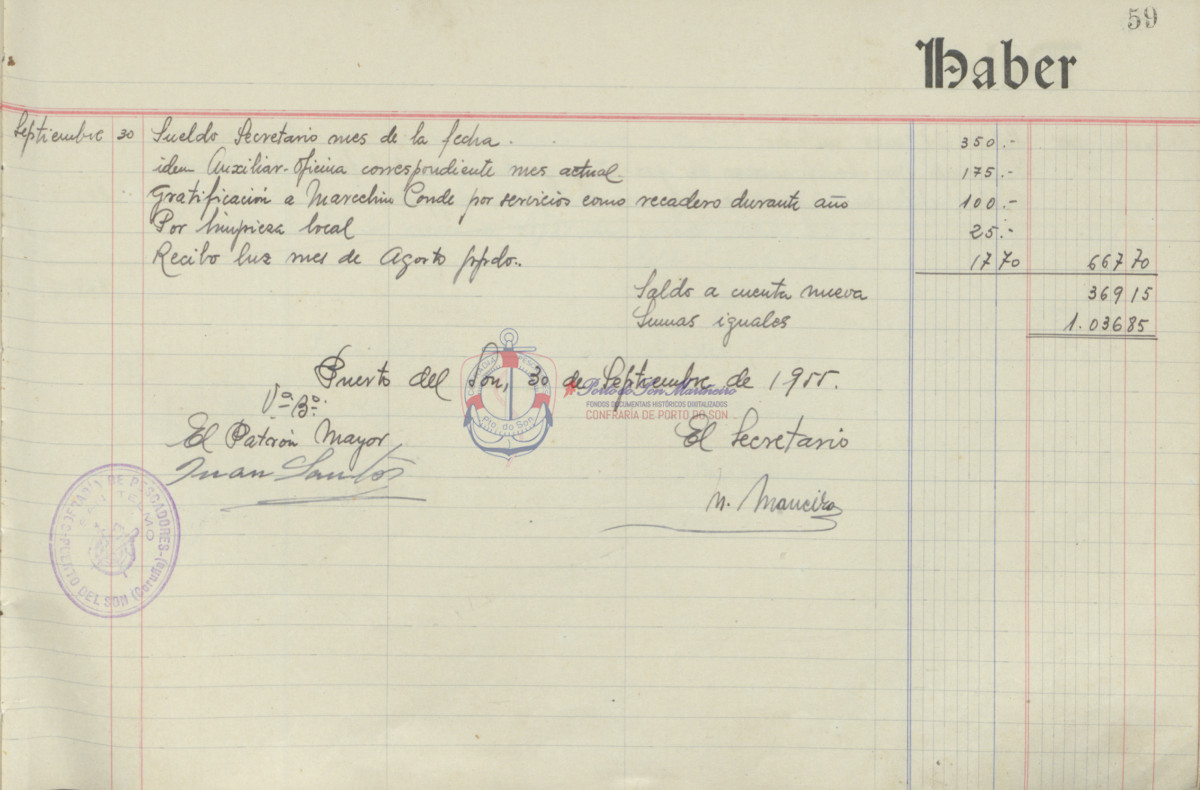 59
Haber
Septiembre 30 Sueldo Secretario mes de la fecha. 350.-
idem Auxiliar-Oficina correspondiente mes actual. 175.-
Gratificación a Marcelino Conde por servicios como recadero durante año 100.-
Por limpieza local 25.-
Recibo luz mes de Agosto ppdo.. 17 70 667 70
Saldo a cuenta nueva 369 15
Sumas iguales 1.036 85
Puerto del Son, 30 de Septiembre de 1955.
Vº Bº
El Patrón Mayor El Secretario
Juan Santos
M. Maneiro
COFRADIA DE PESCADORES
PUERTO DEL SON (Coruña)
Pto. do Son
Porto do Son Mariñeiro
FONDOS DOCUMENTAIS HISTÓRICOS DIGITALIZADOS
CONFRARÍA DE PORTO DO SON